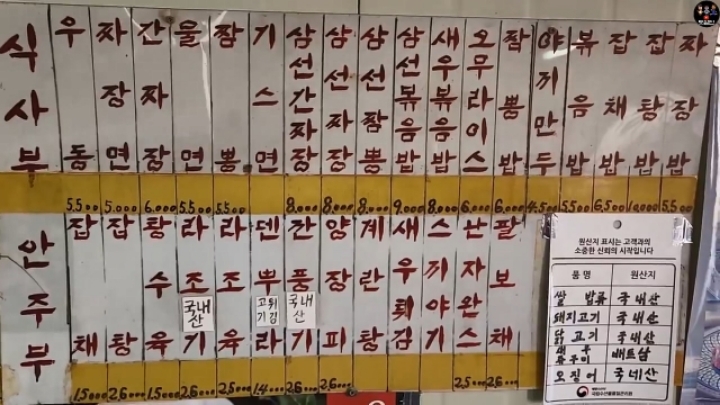 식사부
우동 5.500
짜장면 5.000
간짜장 6.000
울면 5.500
짬뽕 5.500
기스면
삼선간짜장 8.000
삼선짜장 8.000
삼선짬뽕 8.000
삼선볶음밥 9.000
새우볶음밥 8.000
오무라이스 6.000
짬뽕밥 6.000
야끼만두 4.500
볶음밥 5.500
잡채밥 6.500
잡탕밥 10.000
짜장밥 5.500
안주부
잡채
잡탕
탕수육
라조기
국내산
라조육
덴뿌라
고기튀김
깐풍기
국내산
양장피
계란탕
새우튀김
스끼야끼
난자완스
팔보채
원산지 표시는 고객과의
소중한 신뢰의 시작입니다
품 명 원산지
쌀 밥류 국내산
돼지고기 국내산
닭고기 국내산
쭈꾸미 베트남
오징어 국네산